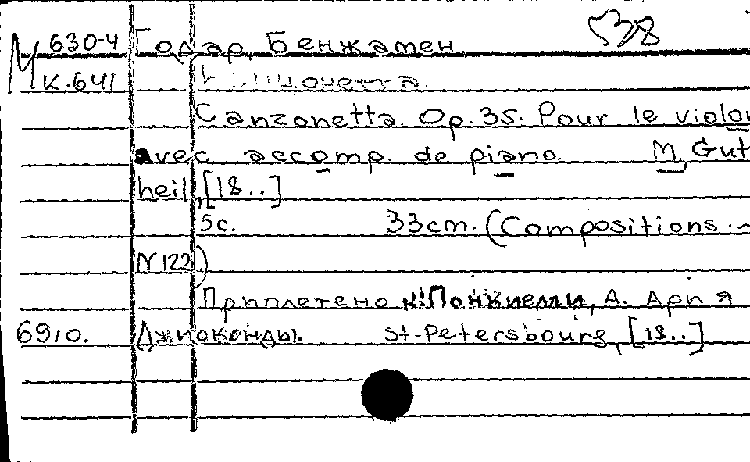 М 630-4 Годар, Бенжамен 538
К.641
Canzonetta. Op. 35. Pour le violon
avec accomp. de piano. M, Gut
heil, [18..]
5c. 33cm. (Compositions
N122)
Приплетено к: Понкиелли, А. Ария
6910. Джиоконды. St-Petersbourg, [18..]